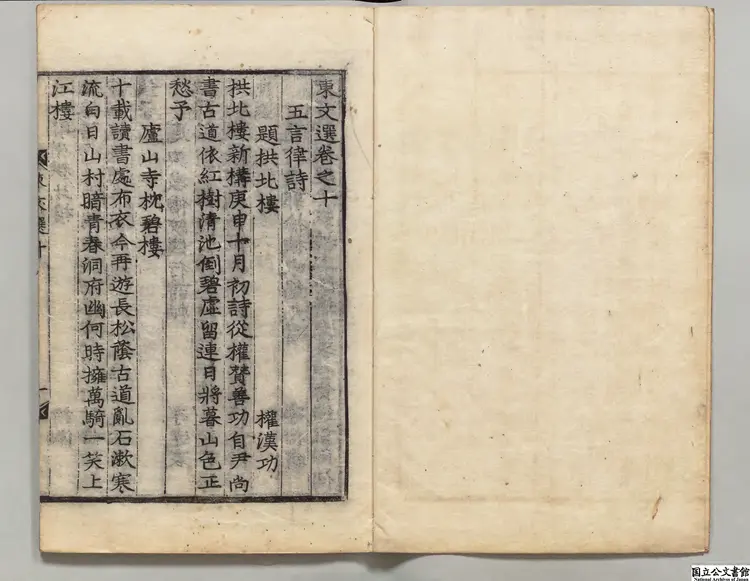 東文選卷之十
五言律詩
題拱北樓 權漢功
拱北樓新構庚申十月初詩從權贊善功自尹尚
書古道依紅樹清池倒碧虛留連日將暮山色正
愁予
廬山寺枕碧樓
十載讀書處布衣今再遊長松蔭古道亂石漱寒
流白日山村暗青春洞府幽何時擁萬騎一笑上
江樓
東文選十
一
国立公文書館
National Archives of Japan